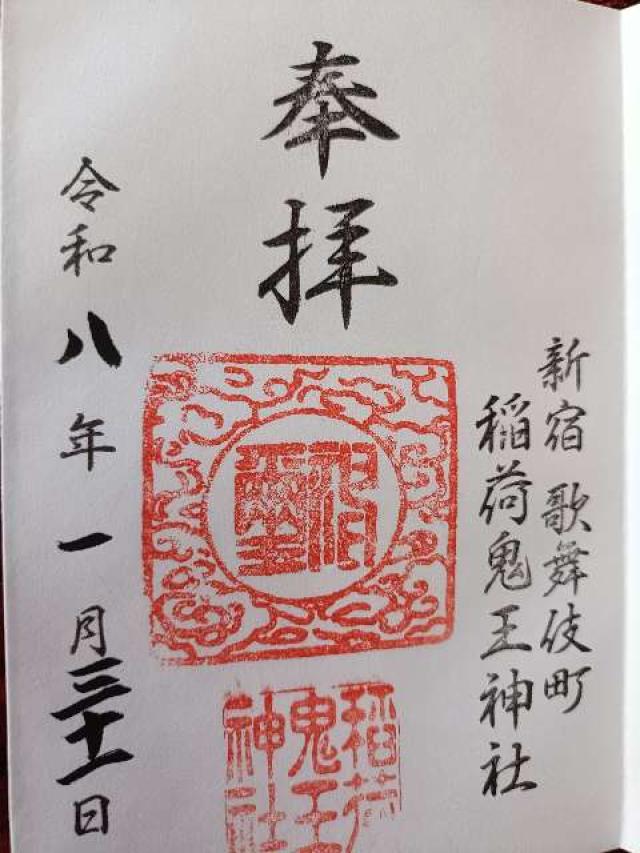 新宿 歌舞伎町
稲荷鬼王神社
奉拝
神璽
稲荷
鬼王
神社
令和八年一月三十一日